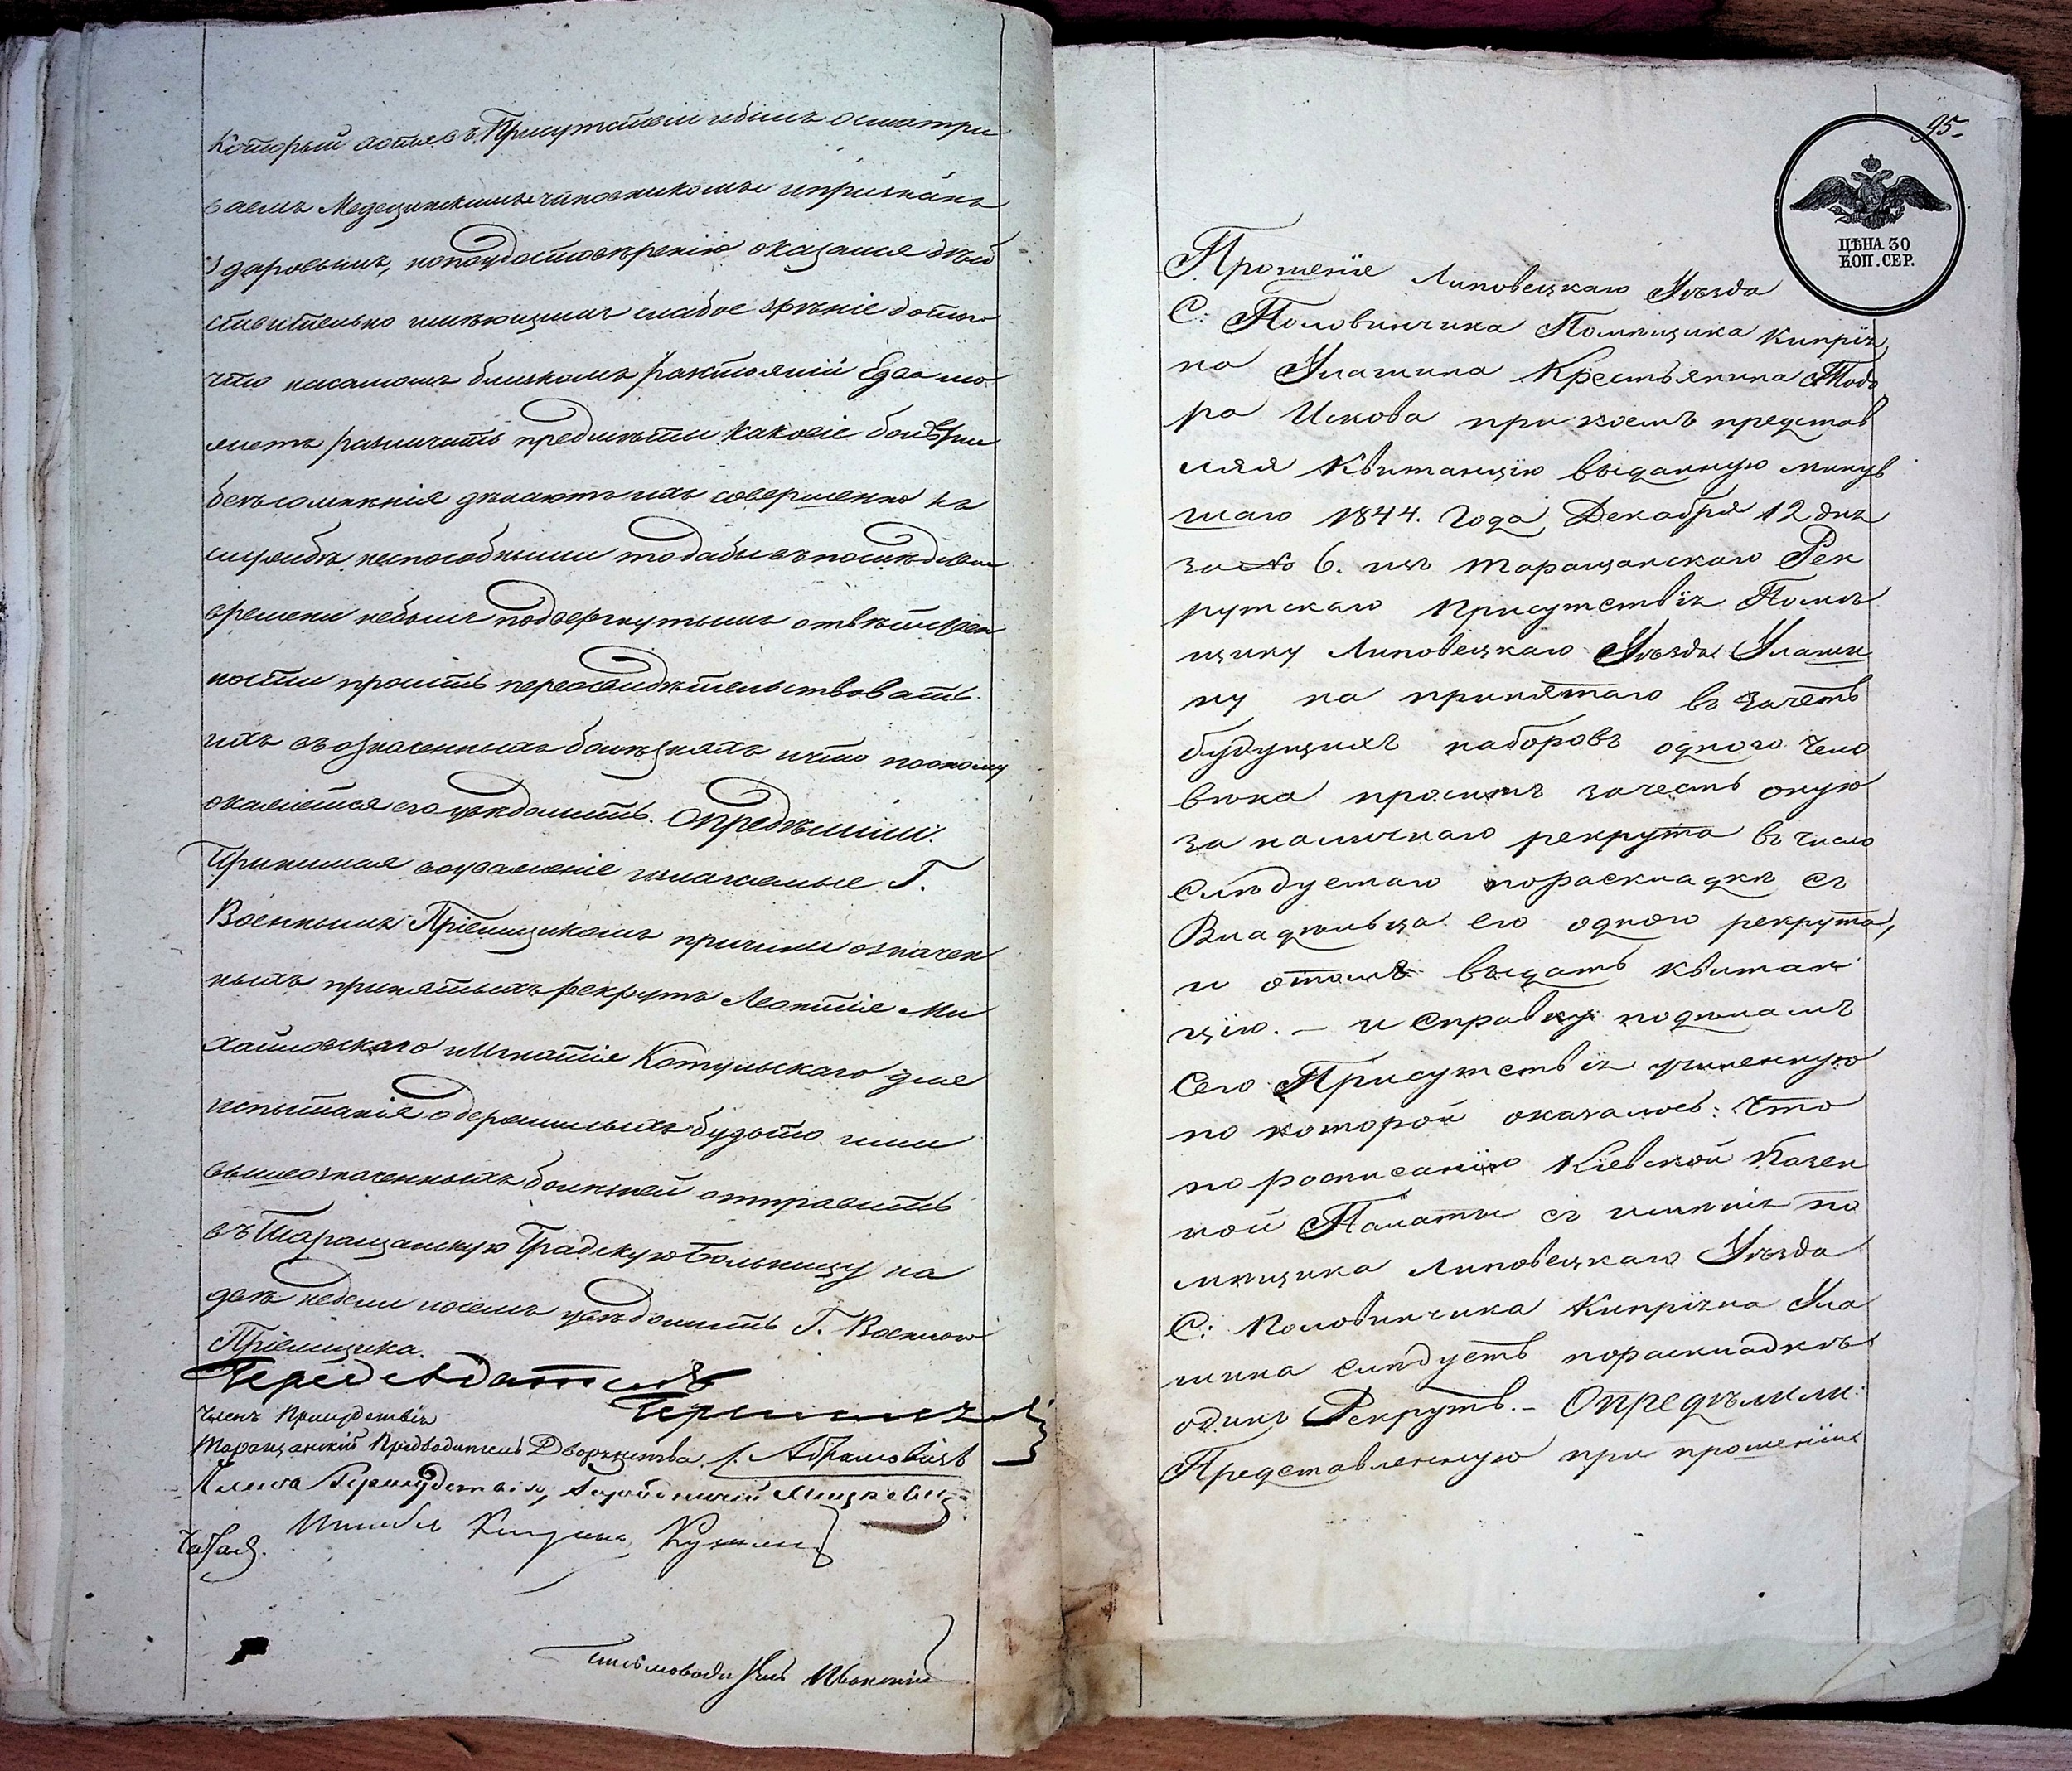 Который хотя въ Присутствіи и былъ осматри
ваемъ Медецинскимъ чиновникомъ и признанъ
здоровымъ, но по удостовѣренію оказался дѣй
ствительно имѣющимъ слабое зрѣніе до того
что на самомъ близкомъ разстояніи Едва мо
жетъ различать предмѣты каковіе болѣзни
безъ сомнѣнія дѣлаютъ ихъ совершенно къ
службѣ неспособными то дабы въ послѣдствіи
времени небылъ подвергнутымъ отвѣтствен
ности проситъ переосвидѣтельствовать
ихъ въ означенныхъ болѣзняхъ и что по оному
окажется его увѣдомить. Опредѣлили:
Принимая во уваженіе излагаемые Г.
Военнымъ Пріемщикомъ причини означен
ныхъ принятыхъ рекрутъ Леонтія Ми
хайловскаго и Игнатія Котульскаго для
испытанія одержимыхъ будьто ими
вышеозначенныхъ болѣзней отправить
въ Таращанскую Градскую Больницу на
двѣ недели и о семъ увѣдомить Г. Военнаго
Пріемщика.
Председатель
Членъ Присудствія
Таращанскій Предводитель Дворянства Абрамовичъ
Члена Присудствія, Городничій Мицкевичъ
Письмоводитель
95.
ЦѢНА 30
КОП. СЕР.
Прошеніе Липовецкаго Уѣзда
С: Половинчика Помѣщика Кипріа
на Улашина Крестьянина Тодо
ра Искова при коемъ представ
ляя Квитанцію выданную минув
шаго 1844. Года Декабря 12 дня
за № 6. изъ Таращанскаго Рек
рутскаго Присутствія Помѣ
щику Липовецкаго Уѣзда Улаши
ну на принятаго въ зачетъ
будущихъ наборовъ одного чело
вѣка проситъ зачесть оную
за наличнаго рекрута въ число
слѣдуемаго пораскладкѣ съ
Владѣльца его одного рекрута,
и отомъ выдать квитан
цію. – и справку подѣламъ
Сего Присутствія учиненную
по которой оказалось: что
по росписанію Кіевской Казен
ной Палаты съ имѣнія по
мѣщика Липовецкаго Уѣзда
С: Половинчика Кипріана Ула
шина слѣдуетъ пораскладкѣ
одинъ Рекрутъ. – Опредѣлили:
Представленную при прошеніи